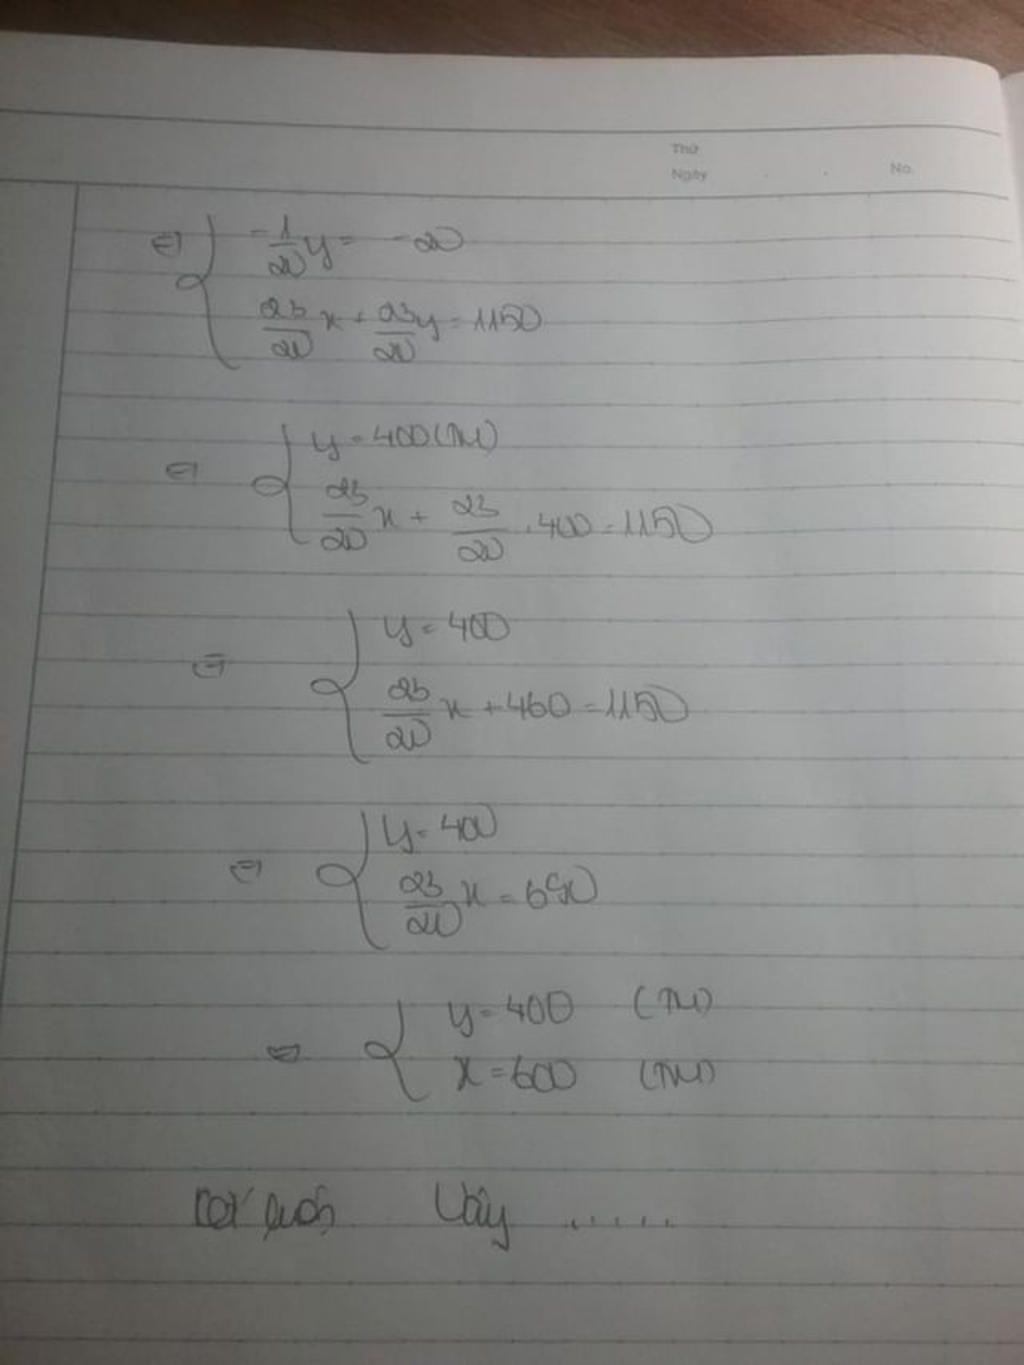 Thứ
Ngày No.
⇔ { -1/20 y = -20
23/20 x + 23/20 y = 1150
⇔ { y = 400 (TM)
23/20 x + 23/20 . 400 = 1150
⇔ { y = 400
23/20 x + 460 = 1150
⇔ { y = 400
23/20 x = 690
⇔ { y = 400 (TM)
x = 600 (TM)
Vậy .....